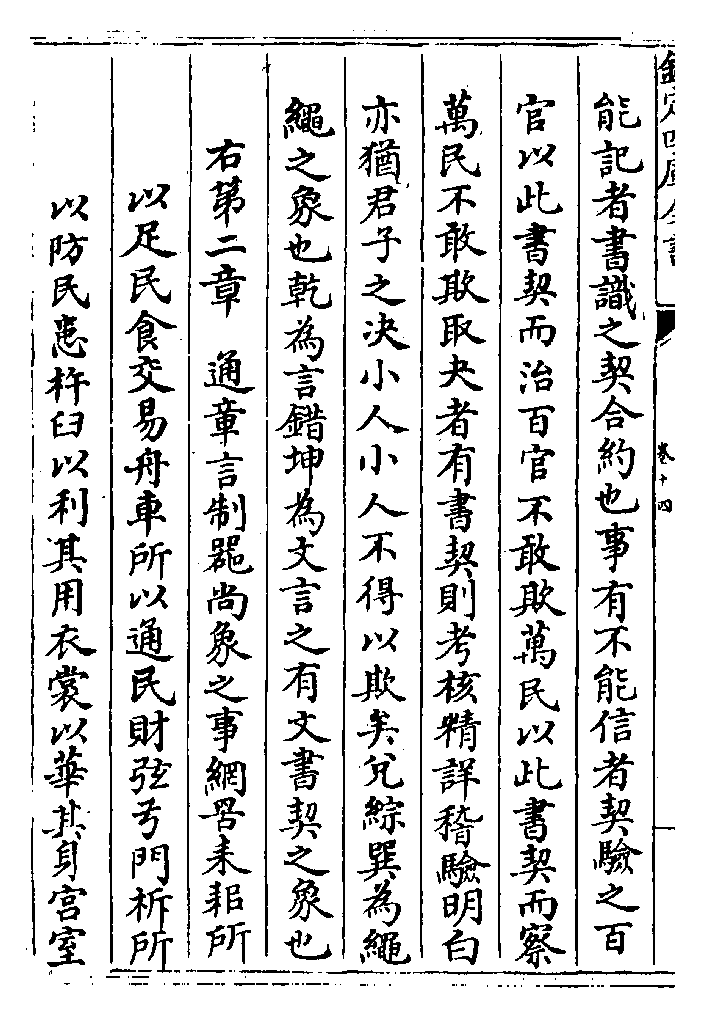 欽定四庫全書
卷十四
能記者書識之契合約也事有不能信者契驗之百
官以此書契而治百官不敢欺萬民以此書契而察
萬民不敢欺取夬者有書契則考核精詳稽驗明白
亦猶君子之决小人小人不得以欺矣兌綜巽為繩
繩之象也乾為言錯坤為文言之有文書契之象也
右第二章　通章言制器尚象之事網罟耒耜所
以足民食交易舟車所以通民財弦弓門柝所
以防民患杵臼以利其用衣裳以華其身宫室